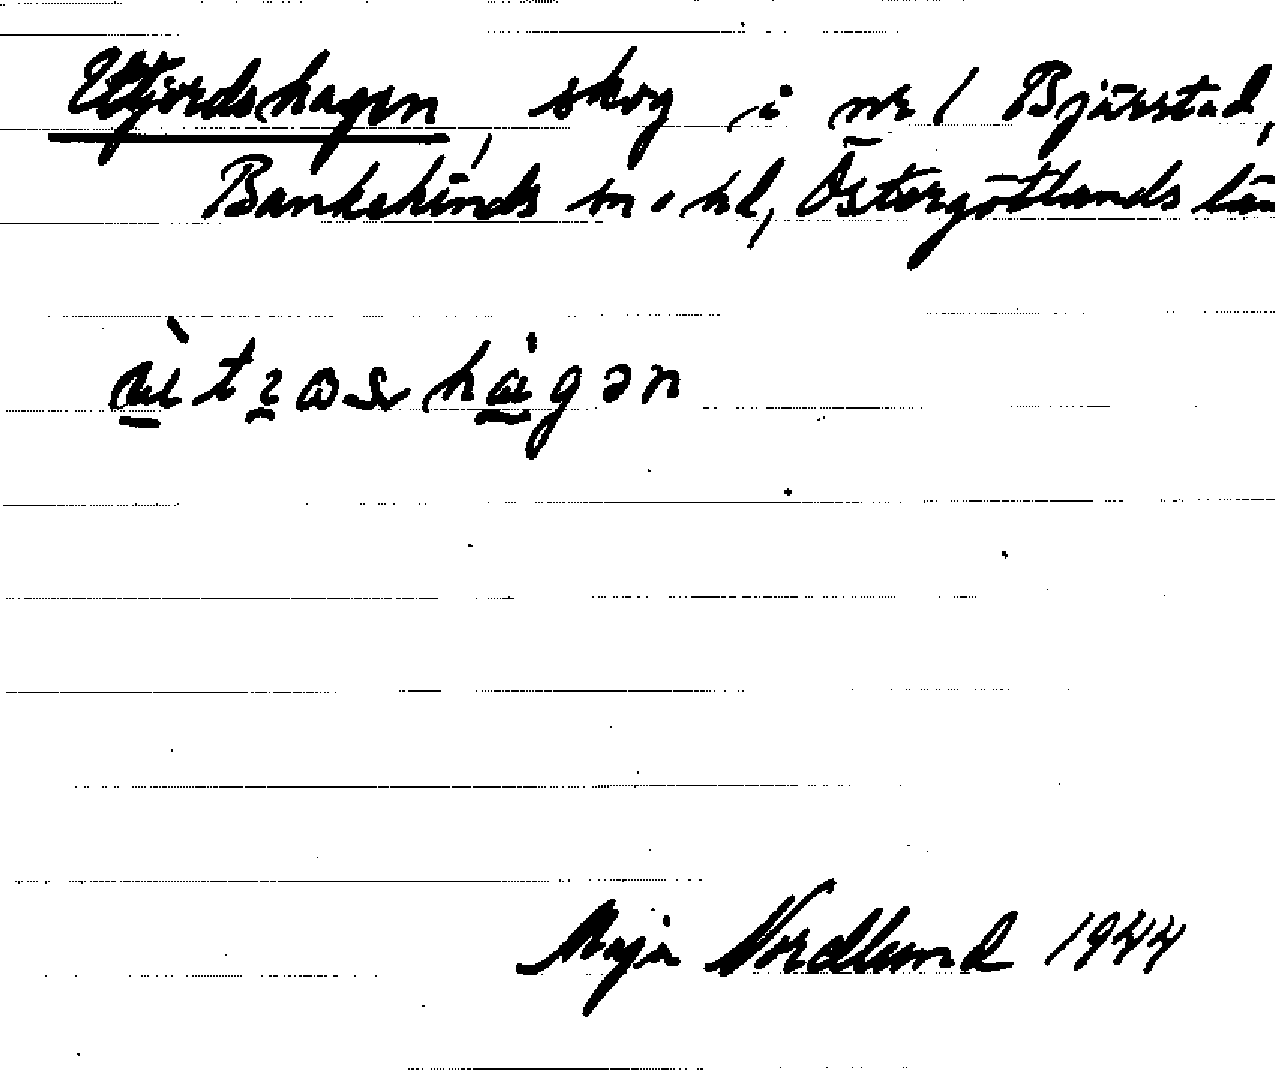 Utjordshagen, skog i nr 1 Bjärstad,
Bankekinds sn o hd, Östergötlands län
Maja Nordlund 1944